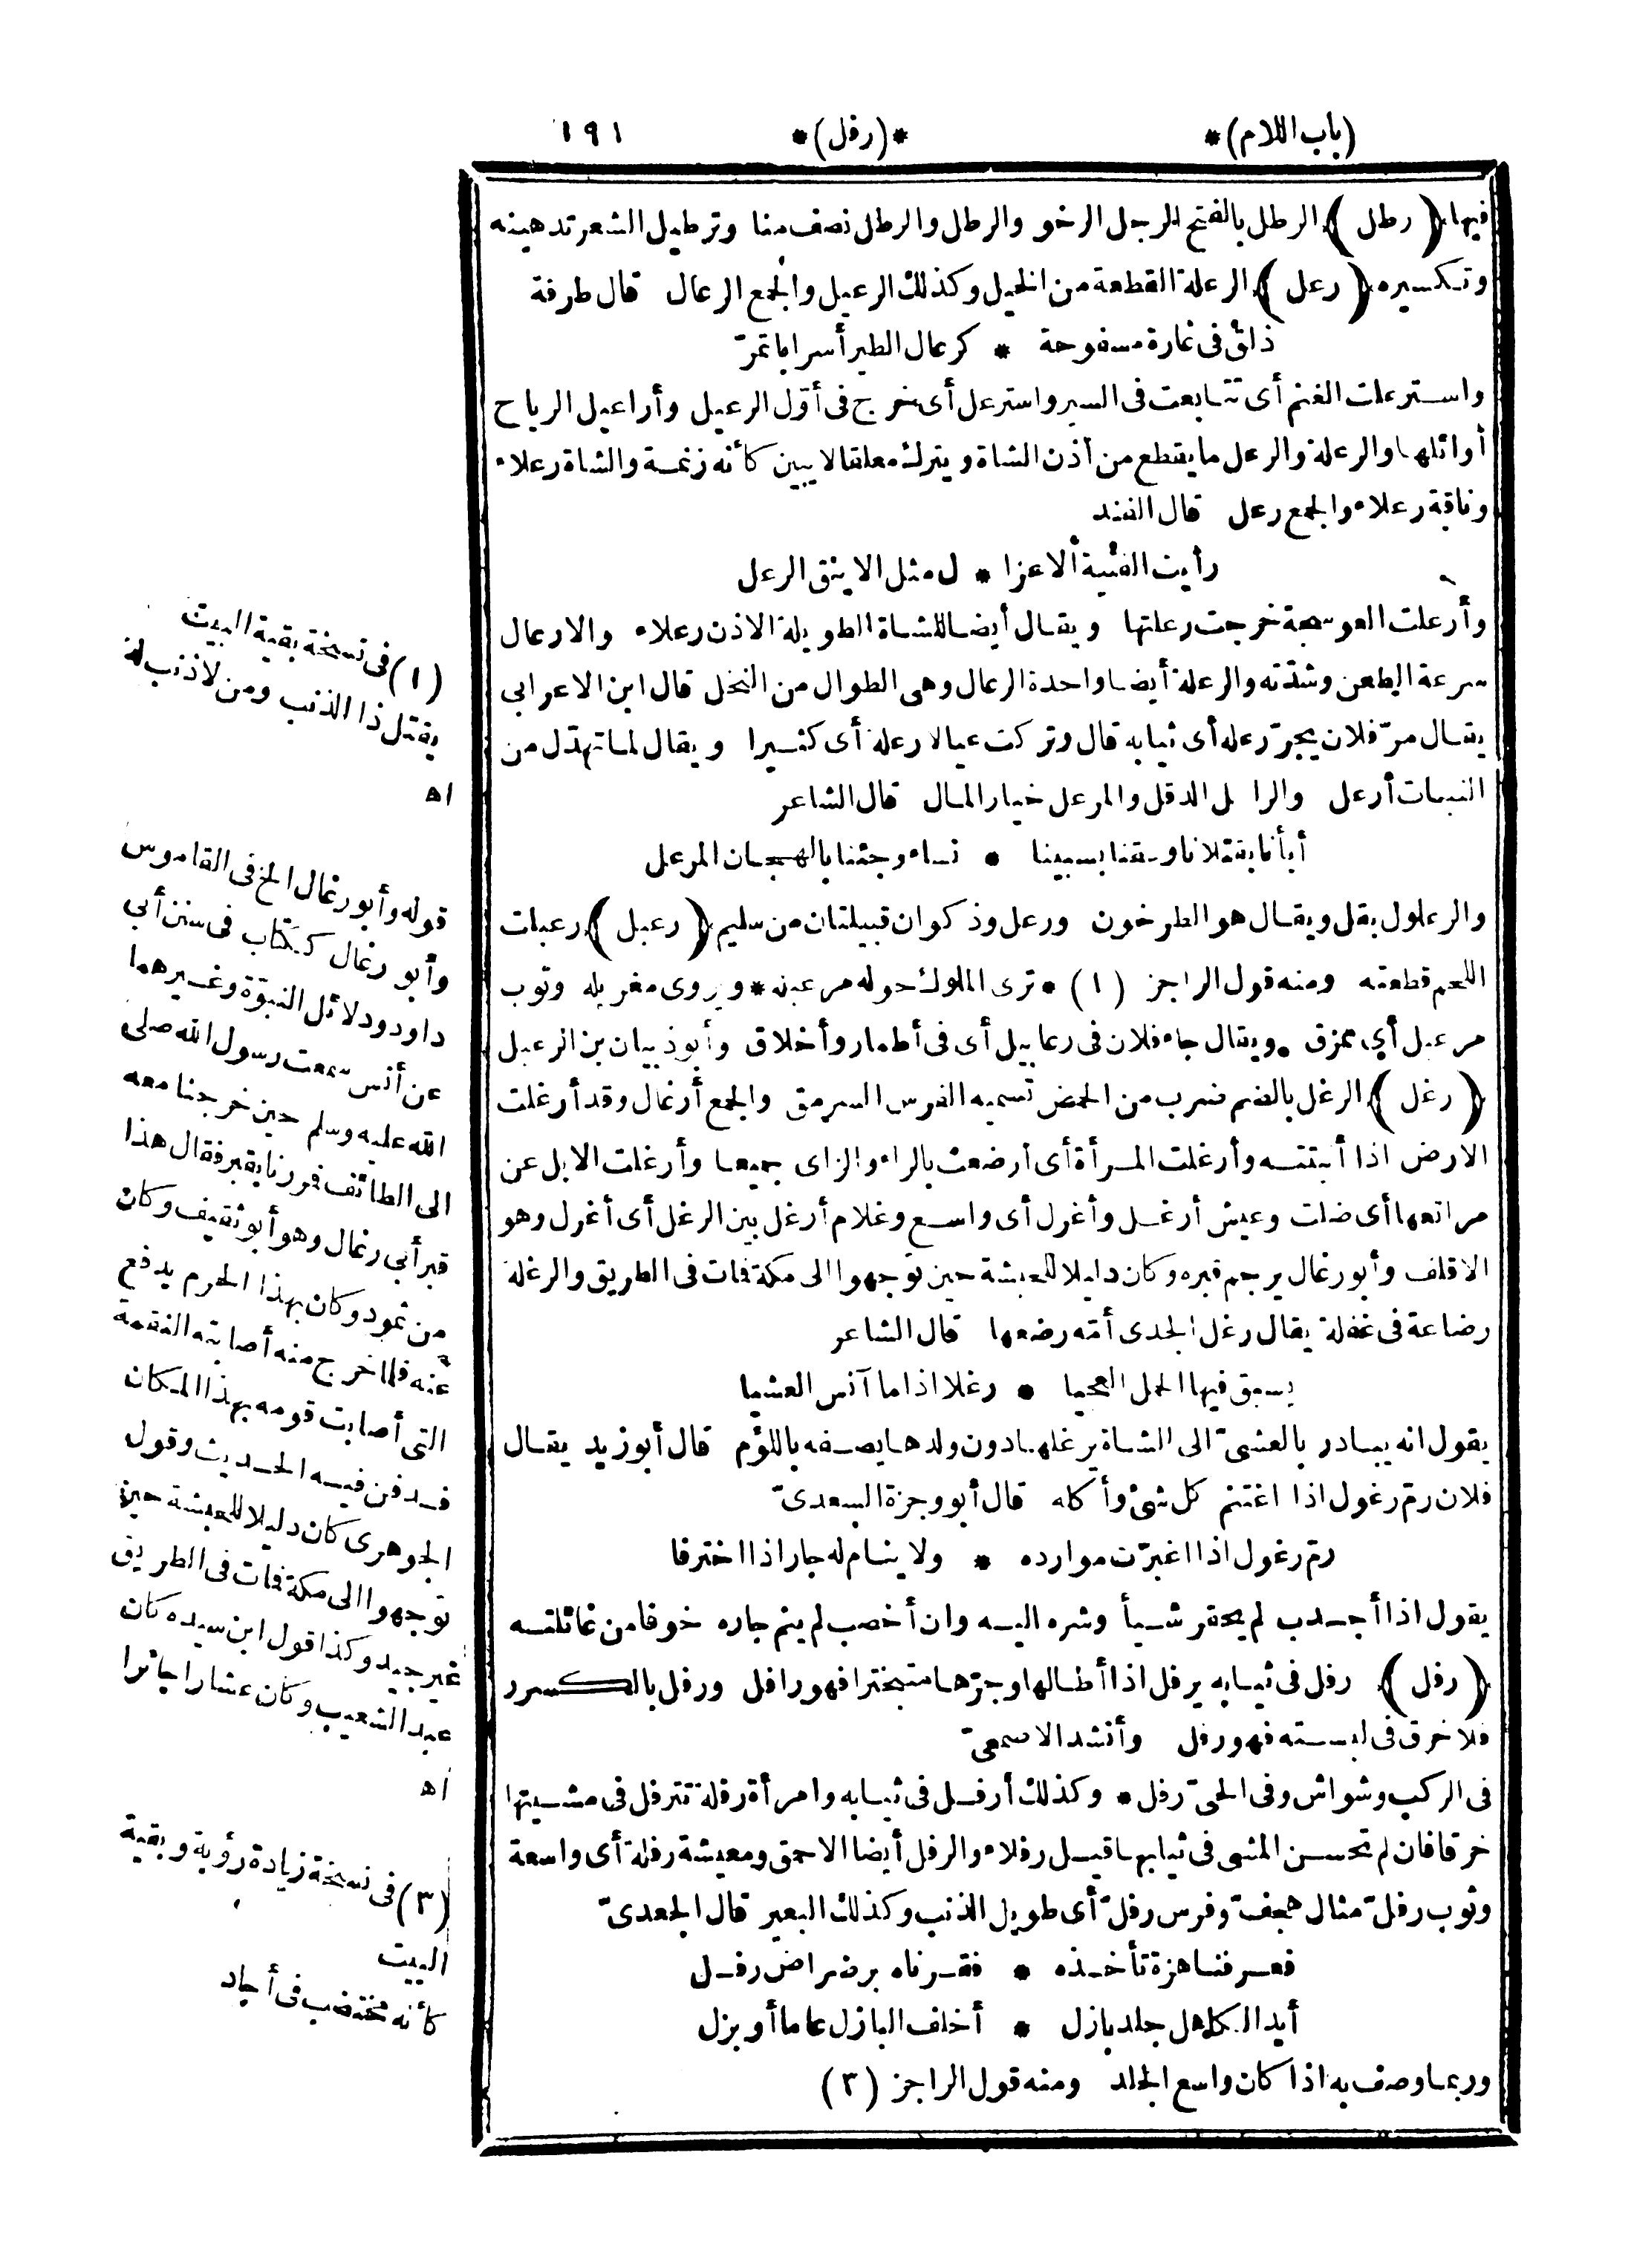 (باب اللام)* *(رفل)* ١٩١
فيها (رطل) الرطل بالفتح الرجل الرخو والرطل والرطل نصف منا وترطيل الشعر تدهينه
وتكسيره (رعل) الرعلة القطعة من الخيل وكذلك الرعيل والجمع الرعال قال طرفة
ذلق فى غارة مسفوحة * كرعال الطير أسرابا تمرّ
واسترعلت الغنم أى تتابعت فى السير واسترعل أى خرج فى أوّل الرعيل وأراعيل الرياح
أوائلها والرعلة والرعل ما يقطع من أذن الشاة ويترك معلقا لا يبين كأنه زنمة والشاة رعلاء
وناقة رعلاء والجمع رعل قال الفند
رأيت الفتية الاعزا * ل مثل الاينق الرعل
وأرعلت العوسجة خرجت رعلتها ويقال أيضا للشاة الطويلة الاذن رعلاء والارعال
سرعة الطعن وشدّته والرعلة أيضا واحدة الرعال وهى الطوال من النخل قال ابن الاعرابى
يقال مرّ فلان يجرّ رعله أى ثيابه قال وتركت عيالا رعلة أى كثيرا ويقال لما تهدّل من
النبات أرعل والرا عل الدقل والمرعل خيار المال قال الشاعر
أبأنا بقتلانا وسقنا بسبينا * نساء وجئنا بالهجان المرعل
والرعلول بقل ويقال هو الطرخون ورعل وذكوان قبيلتان من سليم (رعبل) رعبلت
اللحم قطعته ومنه قول الراجز (١) * ترى الملوك حوله مرعبله * ويروى مغربله وثوب
مرعبل أي ممزق ويقال جاء فلان فى رعابيل أى فى أطمار وأخلاق وأبو ذبيان بن الرعبل
(رغل) الرغل بالضم ضرب من الحمض تسميه الفرس السرمق والجمع أرغال وقد أرغلت
الارض اذا أنبتته وأرغلت المرأة أى أرضعت بالراء والزاى جميعا وأرغلت الابل عن
مراتعها أى ضلت وعيش أرغل وأغرل أى واسع وغلام أرغل بين الرغل أى أغرل وهو
الاقلف وأبو رغال يرجم قبره وكان دليلا للحبشة حين توجهوا الى مكة فمات فى الطريق والرغلة
رضاعة فى غفلة يقال رغل الجدى أمّه رضعها قال الشاعر
يسبق فيها الحمل العجيا * رغلا اذا ما آنس العشيا
يقول انه يبادر بالعشىّ الى الشاة يرغلها دون ولدها يصفه باللؤم قال أبو زيد يقال
فلان رمّ رغول اذا اغتنم كل شئ وأكله قال أبو وجزة السعدىّ
رمّ رغول اذا اغبرّت موارده * ولا ينام له جار اذا اخترفا
يقول اذا أجدب لم يحقر شيأ وشره اليه وان أخصب لم ينم جاره خوفا من غائلته
(رفل) رفل فى ثيابه يرفل اذا أطالها وجرّها متبخترا فهو رافل ورفل بالكسر ر
فلا خرق فى لبسته فهو رفل وأنشد الاصمعىّ
فى الركب وشواش وفى الحىّ رفل * وكذلك أرفل فى ثيابه وامرأة رفلة تترفل فى مشيتها
خرقا فان لم تحسن المشى فى ثيابها قيل رفلاء والرفل أيضا الاحمق ومعيشة رفلة أى واسعة
وثوب رفلّ مثال هجفّ وفرس رفلّ أى طويل الذنب وكذلك البعير قال الجعدىّ
فعرفنا هزة تأخذه * فقرناه برضراض رفل
أيد الكاهل جلد بازل * أخلف البازل عاما أو بزل
وربما وصف به اذا كان واسع الجلد ومنه قول الراجز (٣)
(١) فى نسخة بقية البيت
يقتل ذا الذنب ومن لا ذنب له
اه
قوله وأبو رغال الخ فى القاموس
وأبو رغال ككتاب فى سنن أبى
داود ودلائل النبوّة وغيرهما
عن أنس سمعت رسول الله صلى
الله عليه وسلم حين خرجنا معه
الى الطائف فمررنا بقبر فقال هذا
قبر أبى رغال وهو أبو ثقيف وكان
من ثمود وكان بهذا الحرم يدفع
عنه فلما خرج منه أصابته النقمة
التى أصابت قومه بهذا المكان
فدفن فيه الحديث وقول
الجوهرى كان دليلا للحبشة حين
توجهوا الى مكة فمات فى الطريق
غير جيد وكذا قول ابن سيده كان
عبدا لشعيب وكان عشارا جائرا
اه
(٣) فى نسخة زيادة رؤبة وبقية
البيت
كأنه مختضب فى أجياد